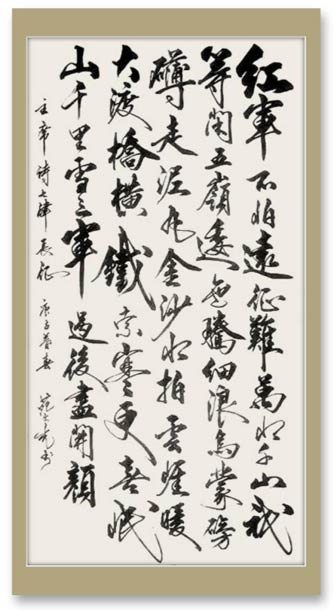 紅軍不怕遠征難萬水千山祇
等閑五嶺逶迤騰細浪烏蒙磅
礴走泥丸金沙水拍雲崖暖
大渡橋橫鐵索寒更喜岷
山千里雪三軍過後盡開顏
主席诗七律 長征 庚子暮春